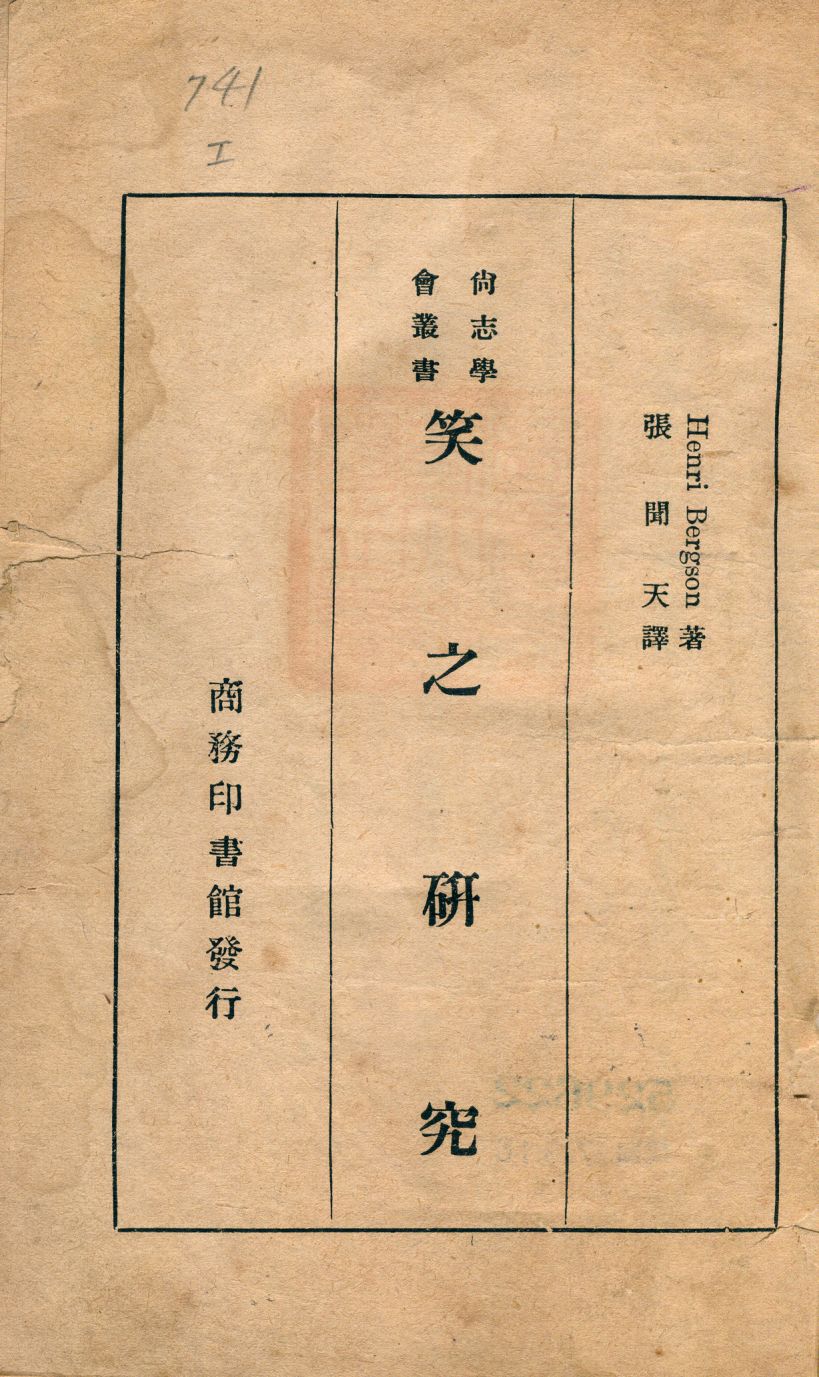 741
I
Henri Bergson 著
張聞天譯
尙志學
會叢書
笑之研究
商務印書館發行